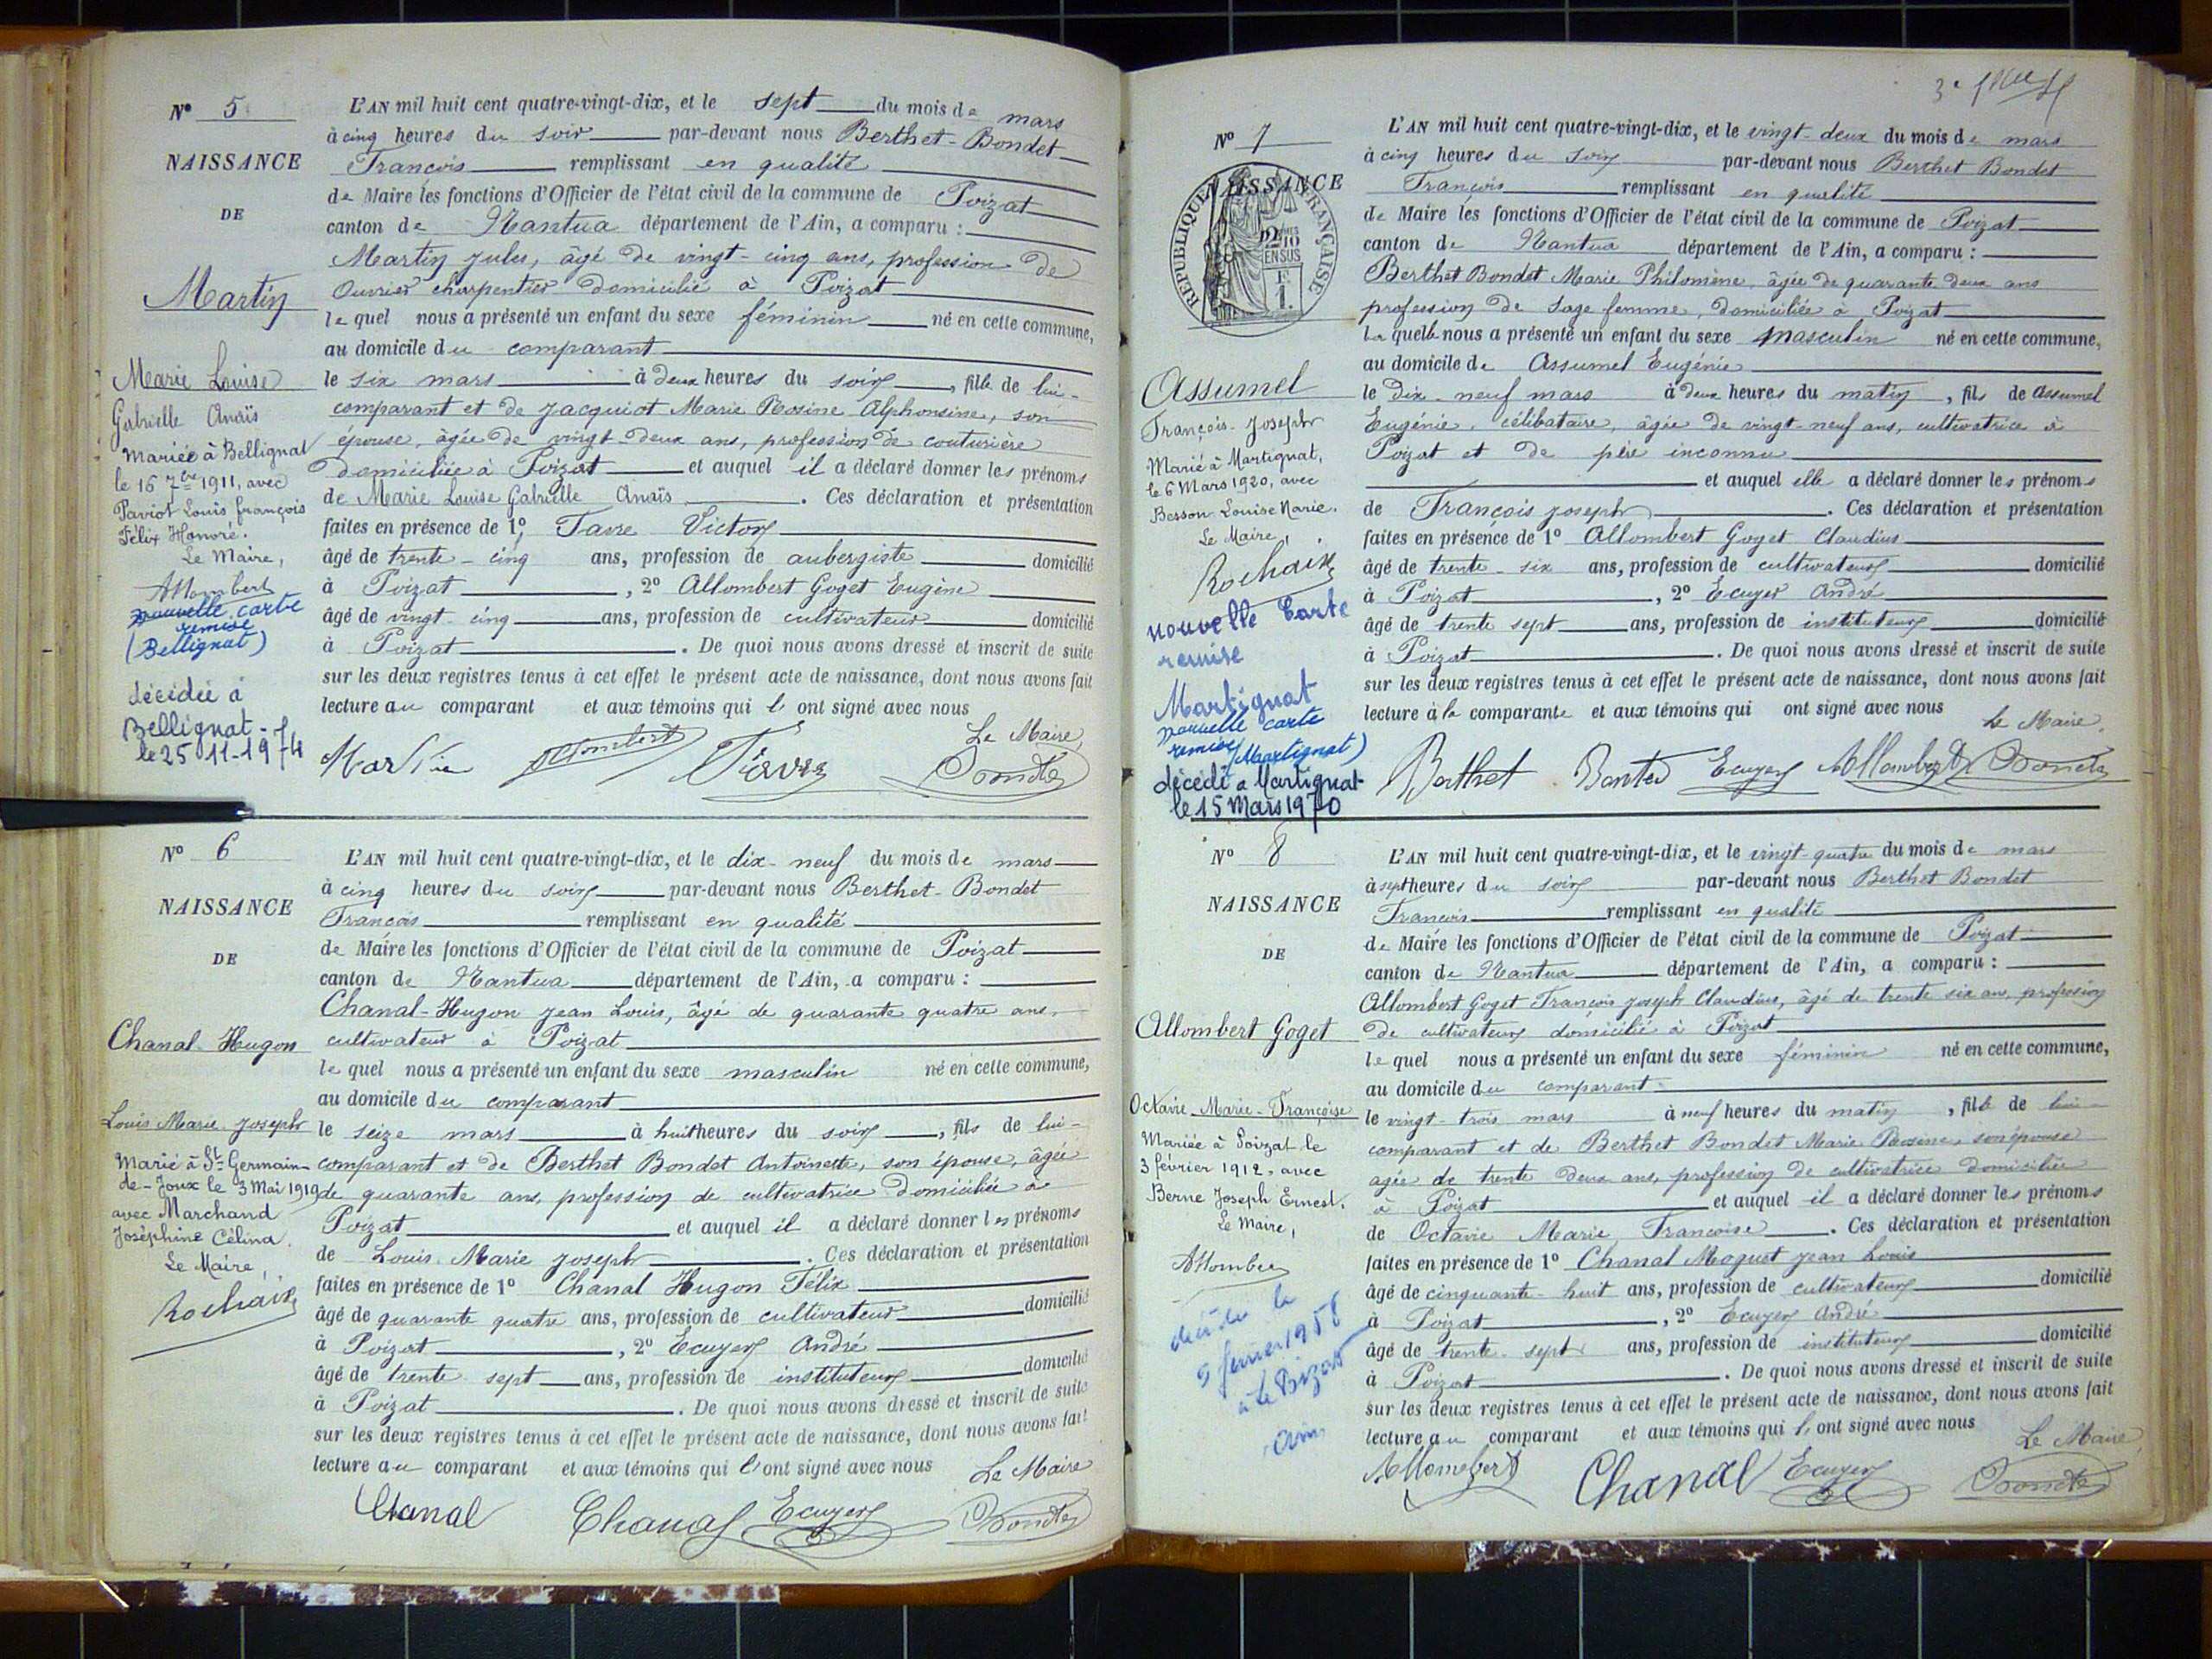 Nº 5
NAISSANCE
DE
Martin
Marie Louise
Gabrielle Anaïs
Mariée à Bellignat
le 16 7bre 1911, avec
Paviot Louis François
Félix Honoré.
Le Maire,
Allombert
nouvelle carte
remise
(Bellignat)
décédée à
Bellignat
le 25-11-1974
L'AN mil huit cent quatre-vingt-dix, et le sept du mois de mars
à cinq heures du soir par-devant nous Berthet-Bondet
François remplissant en qualité
de Maire les fonctions d'Officier de l'état civil de la commune de Poizat
canton de Nantua département de l'Ain, a comparu :
Martin Jules, âgé de vingt-cinq ans, profession de
Ouvrier charpentier domicilié à Poizat
lequel nous a présenté un enfant du sexe féminin né en cette commune,
au domicile du comparant
le six mars à deux heures du soir, fille de lui-
comparant et de Jacquiot Marie Rosine Alphonsine, son
épouse, âgée de vingt-deux ans, profession de couturière
domiciliée à Poizat et auquel il a déclaré donner les prénoms
de Marie Louise Gabrielle Anaïs. Ces déclaration et présentation
faites en présence de 1º, Favre Victor
âgé de trente-cinq ans, profession de aubergiste domicilié
à Poizat, 2º Allombert Goget Eugène
âgé de vingt-cinq ans, profession de cultivateur domicilié
à Poizat. De quoi nous avons dressé et inscrit de suite
sur les deux registres tenus à cet effet le présent acte de naissance, dont nous avons fait
lecture au comparant et aux témoins qui l'ont signé avec nous
Le Maire,
Martin Allombert Favre Bondet
Nº 6
NAISSANCE
DE
Chanal-Hugon
Louis Marie Joseph
Marié à St-Germain-
de-Joux le 3 Mai 1919
avec Marchand
Joséphine Célina.
Le Maire,
Rochaix
L'AN mil huit cent quatre-vingt-dix, et le dix-neuf du mois de mars
à cinq heures du soir par-devant nous Berthet-Bondet
François remplissant en qualité
de Maire les fonctions d'Officier de l'état civil de la commune de Poizat
canton de Nantua département de l'Ain, a comparu :
Chanal-Hugon Jean Louis, âgé de quarante quatre ans,
cultivateur à Poizat
lequel nous a présenté un enfant du sexe masculin né en cette commune,
au domicile du comparant
le seize mars à huit heures du soir, fils de lui-
comparant et de Berthet Bondet Antoinette, son épouse, âgée
de quarante ans, profession de cultivatrice domiciliée à
Poizat et auquel il a déclaré donner les prénoms
de Louis Marie Joseph. Ces déclaration et présentation
faites en présence de 1º Chanal Hugon Félix
âgé de quarante quatre ans, profession de cultivateur domicilié
à Poizat, 2º Ecuyer André
âgé de trente sept ans, profession de instituteur domicilié
à Poizat. De quoi nous avons dressé et inscrit de suite
sur les deux registres tenus à cet effet le présent acte de naissance, dont nous avons fait
lecture au comparant et aux témoins qui l'ont signé avec nous
Le Maire
Chanal Chanal Ecuyer Bondet
Nº 7
NAISSANCE
RÉPUBLIQUE FRANÇAISE
2/10
EN SUS
F.
1.
Assumel
François-Joseph
Marié à Martignat,
le 6 Mars 1920, avec
Besson Louise Marie.
Le Maire,
Rochaix
nouvelle Carte
remise
Martignat
nouvelle carte
remise (Martignat)
décédé à Martignat
le 15 Mars 1970
L'AN mil huit cent quatre-vingt-dix, et le vingt-deux du mois de mars
à cinq heures du soir par-devant nous Berthet Bondet
François remplissant en qualité
de Maire les fonctions d'Officier de l'état civil de la commune de Poizat
canton de Nantua département de l'Ain, a comparu :
Berthet Bondet Marie Philomène, âgée de quarante deux ans
profession de Sage femme, domiciliée à Poizat
laquelle nous a présenté un enfant du sexe masculin né en cette commune,
au domicile de Assumel Eugénie
le dix-neuf mars à deux heures du matin, fils de Assumel
Eugénie, célibataire, âgée de vingt-neuf ans, cultivatrice à
Poizat et de père inconnu
et auquel elle a déclaré donner les prénoms
de François Joseph. Ces déclaration et présentation
faites en présence de 1º Allombert Goget Claudius
âgé de trente-six ans, profession de cultivateur domicilié
à Poizat, 2º Ecuyer André
âgé de trente sept ans, profession de instituteur domicilié
à Poizat. De quoi nous avons dressé et inscrit de suite
sur les deux registres tenus à cet effet le présent acte de naissance, dont nous avons fait
lecture à la comparante et aux témoins qui ont signé avec nous
Le Maire,
Berthet Ecuyer Allombert Bondet
Nº 8
NAISSANCE
DE
Allombert Goget
Octavie-Marie-Françoise
Mariée à Poizat le
3 février 1912, avec
Berne Joseph Ernest.
Le Maire,
Allombert
décédée le
9 février 1958
à Le Poizat
Ain
L'AN mil huit cent quatre-vingt-dix, et le vingt-quatre du mois de mars
à sept heures du soir par-devant nous Berthet Bondet
François remplissant en qualité
de Maire les fonctions d'Officier de l'état civil de la commune de Poizat
canton de Nantua département de l'Ain, a comparu :
Allombert Goget François Joseph Claudius, âgé de trente six ans, profession
de cultivateur domicilié à Poizat
lequel nous a présenté un enfant du sexe féminin né en cette commune,
au domicile du comparant
le vingt-trois mars à neuf heures du matin, fille de lui-
comparant et de Berthet Bondet Marie Rosine, son épouse
agée de trente deux ans, profession de cultivatrice domiciliée
à Poizat et auquel il a déclaré donner les prénoms
de Octavie Marie Françoise. Ces déclaration et présentation
faites en présence de 1º Chanal Moguet Jean Louis
âgé de cinquante-huit ans, profession de cultivateur domicilié
à Poizat, 2º Ecuyer André
âgé de trente-sept ans, profession de instituteur domicilié
à Poizat. De quoi nous avons dressé et inscrit de suite
sur les deux registres tenus à cet effet le présent acte de naissance, dont nous avons fait
lecture au comparant et aux témoins qui l'ont signé avec nous
Le Maire,
Allombert Chanal Ecuyer Bondet